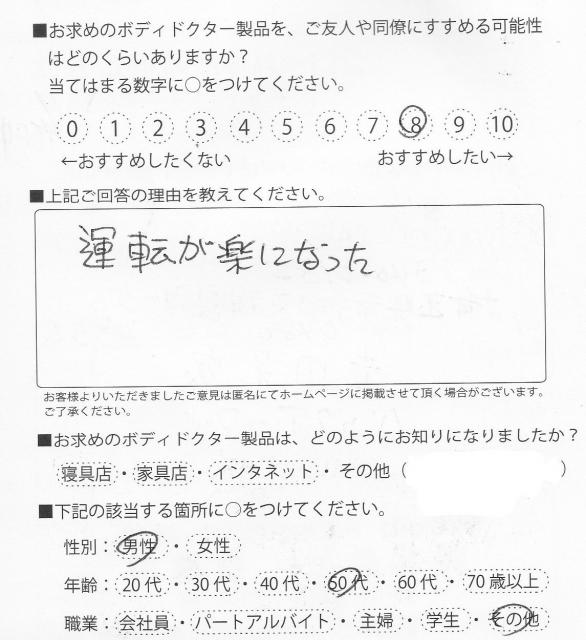 ■お求めのボディドクター製品を、ご友人や同僚にすすめる可能性
はどのくらいありますか？
当てはまる数字に○をつけてください。
0 1 2 3 4 5 6 7 8 9 10
←おすすめしたくない おすすめしたい→
■上記ご回答の理由を教えてください。
運転が楽になった
お客様よりいただきましたご意見は匿名にてホームページに掲載させて頂く場合がございます。
ご了承ください。
■お求めのボディドクター製品は、どのようにお知りになりましたか？
寝具店・家具店・インタネット・その他（ ）
■下記の該当する箇所に○をつけてください。
性別：男性・女性
年齢：20代・30代・40代・60代・60代・70歳以上
職業：会社員・パートアルバイト・主婦・学生・その他